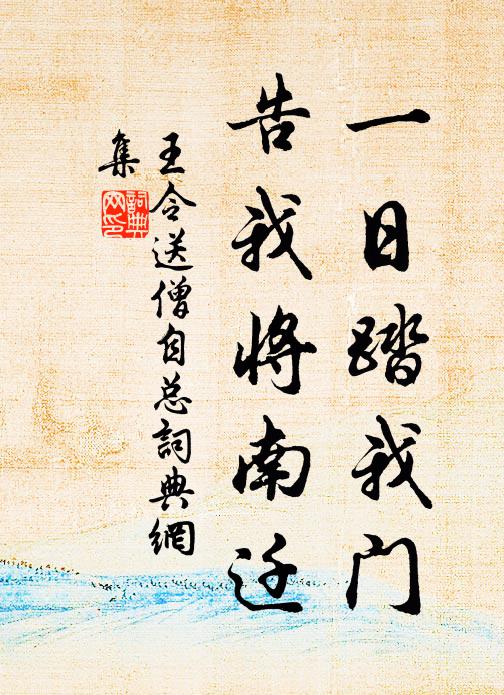 一日踏我门
告我将南迁
王令送僧自总詞典網
集
詞典
网印